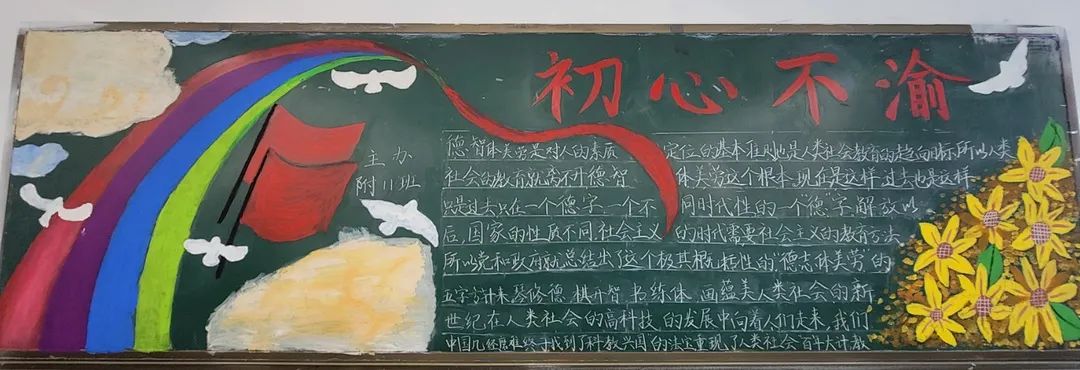 初心不渝
主办
附11班
德智体美劳是对人的素质定位的基本准则也是人类社会教育的趋向目标所以人类
社会的教育就离不开德智体美劳这个根本.现在是这样过去也是这样
只是过去只在一个德字一个不同时代性的一个"德"字.解放以
后,国家的性质不同社会主义的时代需要社会主义的教育方法
所以党和政府就总结出了这个极其概括性的,德志体美劳的
五字方针来琴修德.棋开智.书练体.画蕴美人类社会的新
世纪在人类社会的高科技,的发展中向着人们走来,我们
中国几经周折终于找到了科教兴国的法宝重现了人类社会百年大计教